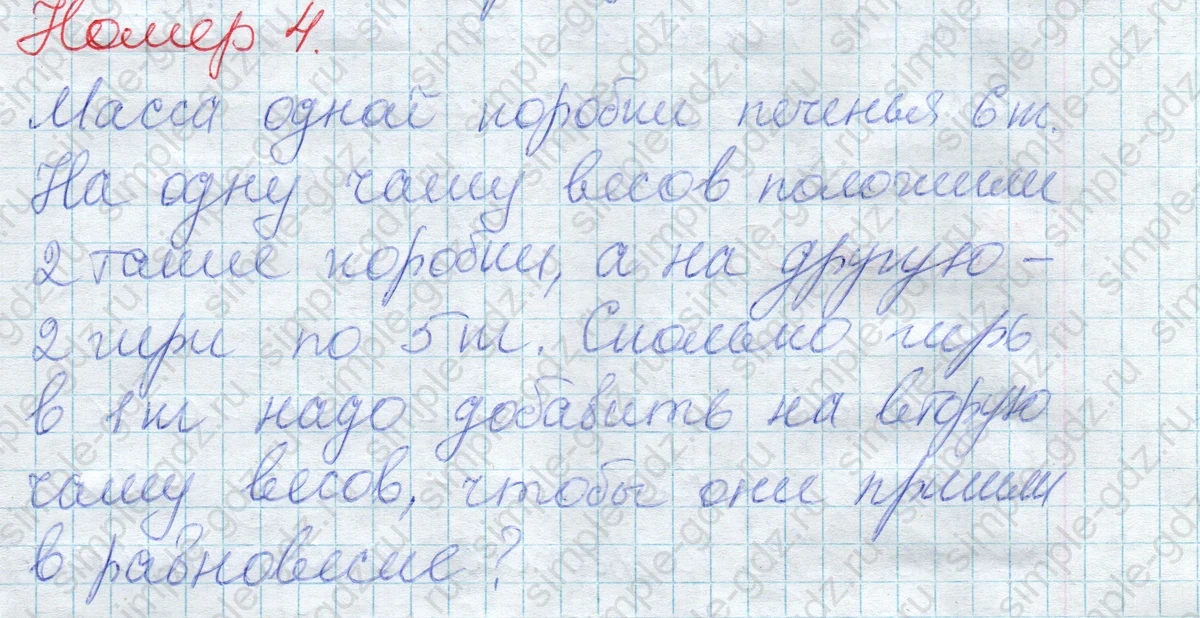 Номер 4.
Масса одной коробки печенья 6 кг.
На одну чашу весов положили
2 такие коробки, а на другую –
2 гири по 5 кг. Сколько гирь
в 1 кг надо добавить на вторую
чашу весов, чтобы они пришли
в равновесие?
simple-gdz.ru